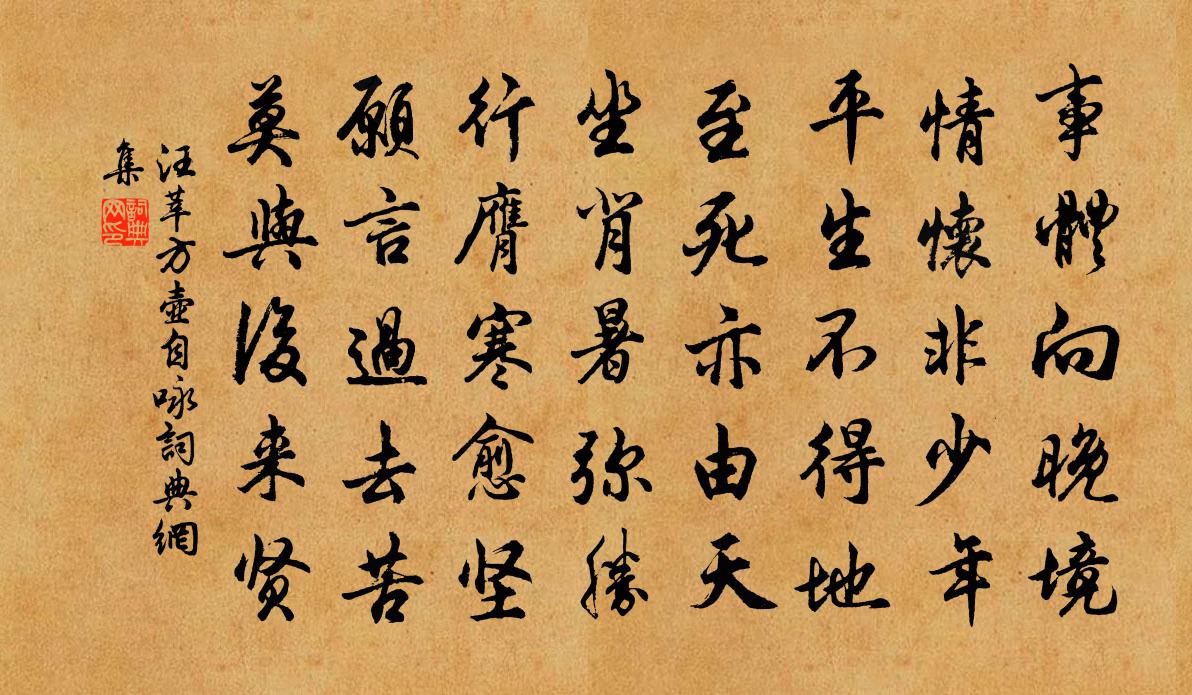 事體向晚境
情懷非少年
平生不得地
至死亦由天
坐肖暑弥勝
行膺寒愈坚
願言過去苦
莫與後来贤
汪莘方壺自咏詞典網
集
詞典
网印